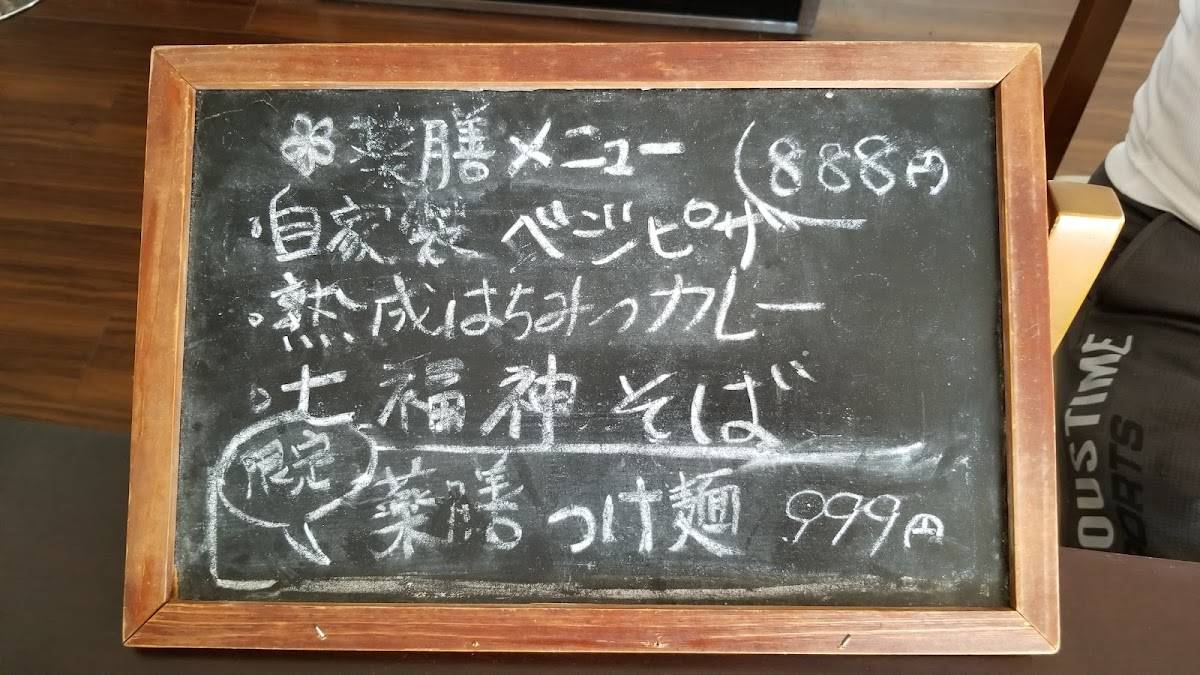 薬膳メニュー 888円
・自家製 ベジピザ
・熟成はちみつカレー
・七福神そば
限定 薬膳つけ麺 999円
OUSTIME
ORTS